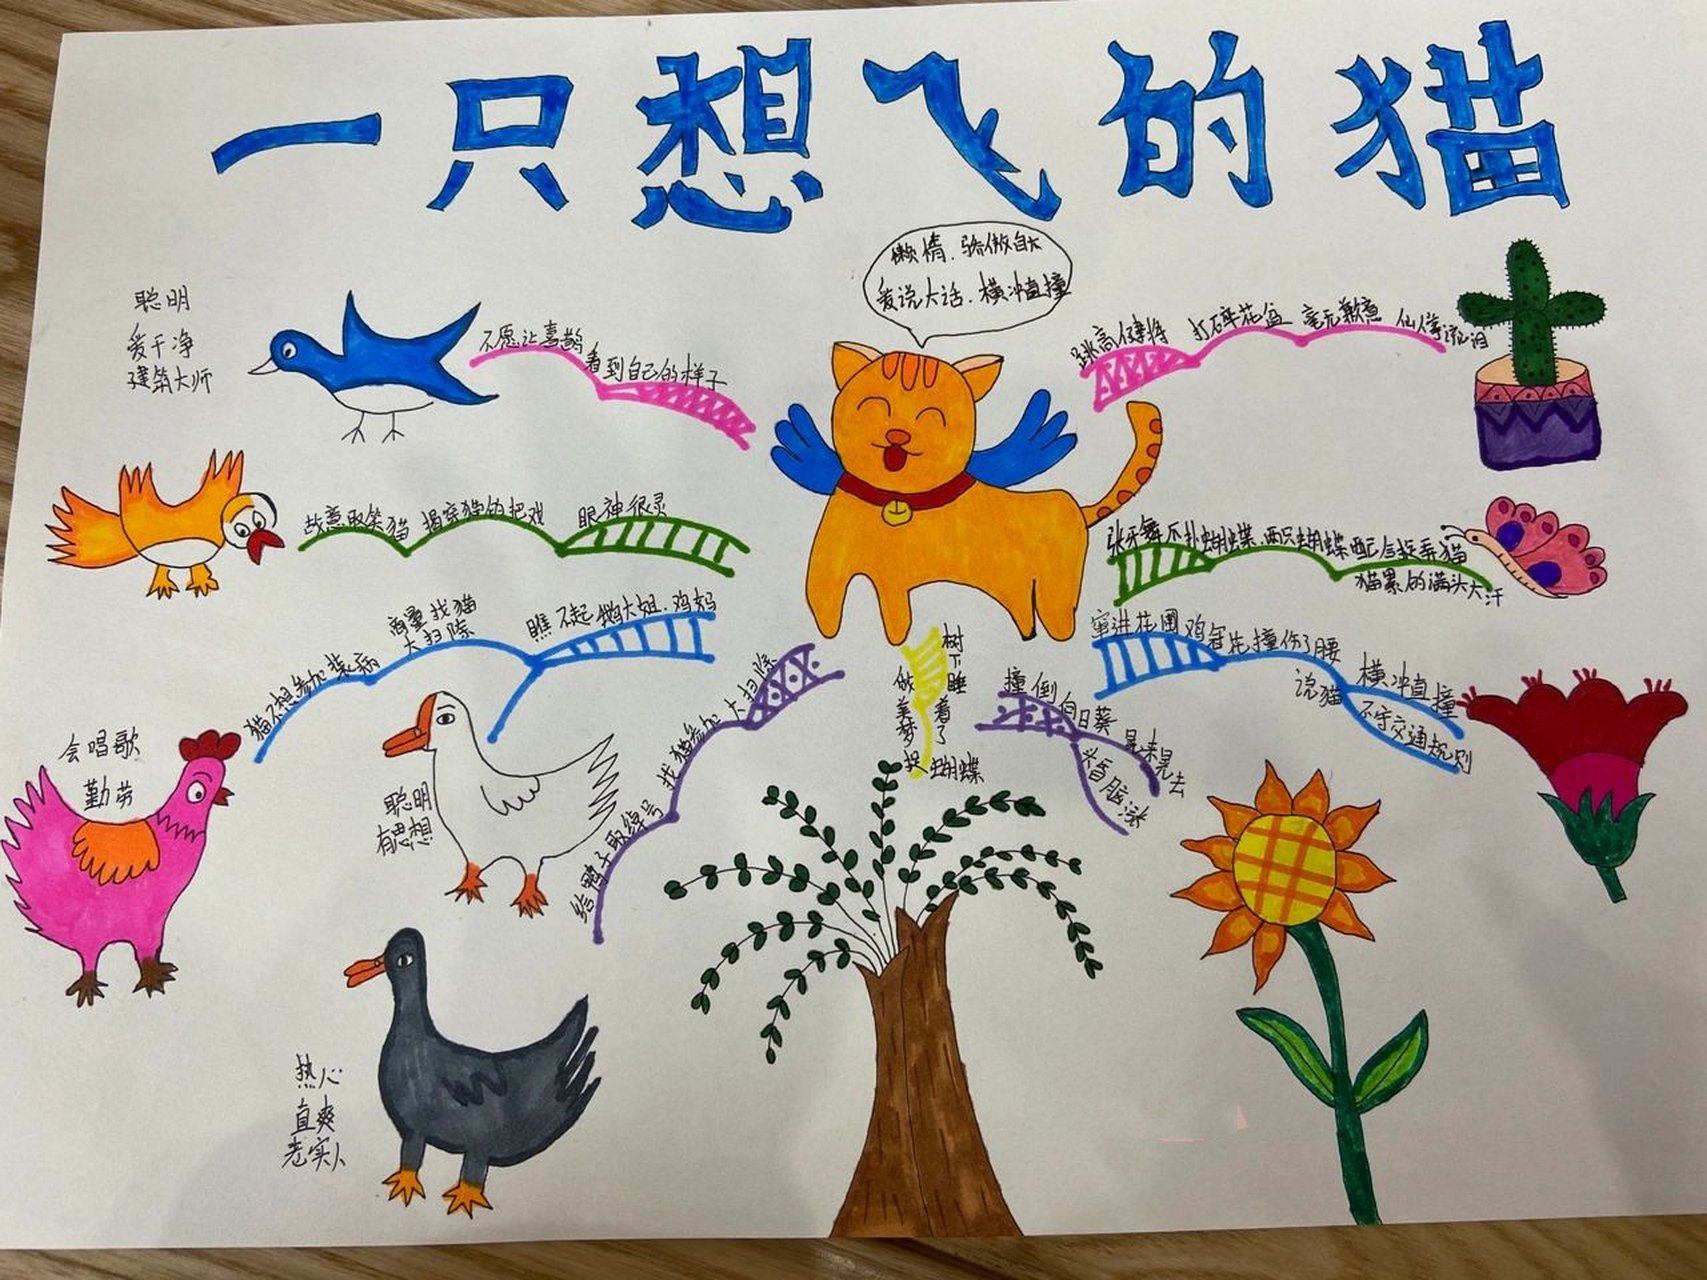 一只想飞的猫
懒惰.骄傲自大
爱说大话.横冲直撞
聪明
爱干净
建筑大师
不愿让喜鹊
看到自己的样子
跳高健将 打碎花盆 毫无歉意 仙人掌流泪
故意取笑猫 揭穿猫的把戏 眼神很灵
张牙舞爪扑蝴蝶.两只蝴蝶配合捉弄猫
猫累的满头大汗
猫不想参加装病
商量找猫
大扫除
瞧不起鹅大姐.鸡妈
窜进花圃 鸡冠花撞伤了腰
说猫
横冲直撞
不守交通规则
给鸭子取绰号 找猫参加 大扫除
树下睡着了
做美梦
捉蝴蝶
撞倒向日葵
晃来晃去
头昏脑涨
会唱歌
勤劳
聪明
有思想
热心
直爽
老实人